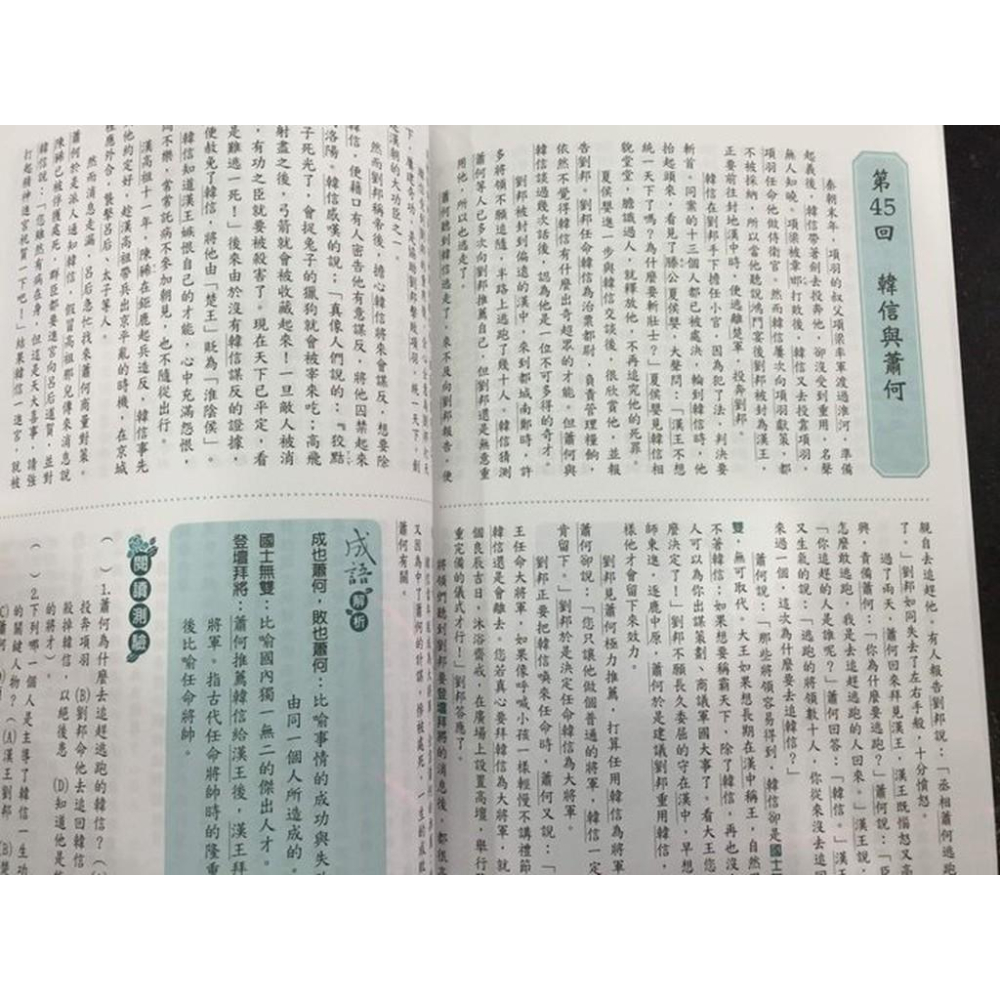 第45回 韓信與蕭何
秦朝末年，項羽的叔父項梁率軍渡過淮河，準備
起義後，韓信帶著劍去投奔他，卻沒受到重用，名聲
無人知曉。項梁被章邯打敗後，韓信又去投靠項羽，
項羽任命他做侍衛官。然而韓信屢次向項羽獻策，都
不被採納，所以當他聽說鴻門宴後劉邦被封為漢王，
正要前往封地漢中時，便逃離楚軍，投奔劉邦。
韓信在劉邦手下擔任小官，因為犯了法，判決要
斬首。同案的十三個人都已被處決，輪到韓信時，他
抬起頭來，看見了滕公夏侯嬰，大聲問：「漢王不想
統一天下了嗎？為什麼要斬壯士？」夏侯嬰見韓信相
貌堂堂，膽識過人，就釋放他，不再追究他的死罪。
夏侯嬰進一步與韓信交談後，很欣賞他，並報
告劉邦。劉邦任命韓信為治粟都尉，負責管理糧餉，
依然不覺得韓信有什麼出奇超眾的才能。但蕭何與
韓信談過幾次話後，認為他是一位不可多得的奇才。
劉邦被封到偏遠的漢中，來到都城南鄭時，許
多將領不願追隨，半路上逃跑了幾十人。韓信猜測
蕭何等人已多次向劉邦推薦自己，但劉邦還是無意重
用他，所以也逃走了。
蕭何聽到韓信逃走了，來不及向劉邦報告，便
親自去追趕他。有人報告劉邦說：「丞相蕭何逃跑
了。」劉邦如同失去了左右手般，十分憤怒。
過了兩天，蕭何回來拜見漢王，漢王既惱怒又高
興，責備蕭何：「你為什麼要逃跑？」蕭何說：「臣
怎麼敢逃跑，我是去追趕逃跑的人回來。」漢王說：
「你追趕的人是誰呢？」蕭何回答：「韓信。」漢王
又生氣的說：「逃跑的將領數十人，你從來沒去追回
來一個，這次為什麼要去追韓信？」
蕭何說：「那些將領容易得到，韓信卻是國士無
雙，無可取代。大王如果想長期在漢中稱王，自然用
不著韓信；如果想要稱霸天下，除了韓信，再也沒
人可以為你出謀策劃、商議軍國大事了。看大王您
麼決定了！」劉邦不願長久委屈的守在漢中，早想
師東進，逐鹿中原，蕭何於是建議劉邦重用韓信，
樣他才會留下來效力。
劉邦見蕭何極力推薦，打算任用韓信為將軍
蕭何卻說：「您只讓他做個普通的將軍，韓信一定
肯留下。」劉邦於是決定任命韓信為大將軍。
劉邦正要把韓信喚來任命時，蕭何又說：「
王任命大將軍，如果像呼喊小孩一樣輕慢不講禮節
韓信還是會離去。您若真心要拜韓信為大將軍，就
個良辰吉日，沐浴齋戒，在廣場上設置高壇，舉行
重完備的儀式才行！」劉邦答應了。
將領們聽到劉邦要登壇拜將的消息後，都很高
下，屢建奇功，是協助劉邦擊敗項羽，統一天下，創
建漢朝的大功臣之一。
然而劉邦稱帝後，擔心韓信將來會謀反，想要除
韓信，便藉口有人密告他有意謀反，將他囚禁起來
洛陽。韓信感嘆的說：「真像人們說的：『狡黠
子死光了，會捉兔子的獵狗就會被宰來吃；高飛
射盡之後，弓箭就會被收藏起來！一旦敵人被消
，有功之臣就要被殺害了。現在天下已平定，看
是難逃一死！」後來由於沒有韓信謀反的證據，
便赦免了韓信，將他由「楚王」貶為「淮陰侯」。
韓信知道漢王嫉恨自己的才能，心中充滿怨恨，
悶不樂，常常託病不參加朝見，也不隨從出行。
漢高祖十一年，陳豨在鉅鹿起兵造反，韓信事先
他約定好，趁漢高祖帶兵出京平亂的時機，在京城
裡應外合，襲擊呂后、太子等人。
然而消息走漏，呂后急忙找來蕭何商量對策。
蕭何於是派人通知韓信，假冒高祖那兒傳來消息說
陳豨已被俘獲處死，群臣都要進宮向呂后道賀，並對
韓信說：「您雖然有病在身，但這是天大喜事，請強
打起精神進宮祝賀一下吧！」結果韓信一進宮，就被
又因為中了蕭何的計謀，慘被處死，一生的成敗
蕭何有關。
成語解析
成也蕭何，敗也蕭何：比喻事情的成功與失
由同一個人所造成的。
國士無雙：比喻國內獨一無二的傑出人才。
登壇拜將：蕭何推薦韓信給漢王後，漢王拜
將軍。指古代任命將帥時的隆重
後比喻任命將帥。
閱讀測驗
（ ）1.蕭何為什麼去追趕逃跑的韓信？（
投奔項羽 (B)劉邦命他去追回韓信
殺掉韓信，以絕後患 (D)知道他是
的將才）
（ ）2.下列哪一個人是主導了韓信一生功
的關鍵人物？（(A)漢王劉邦 (B)楚